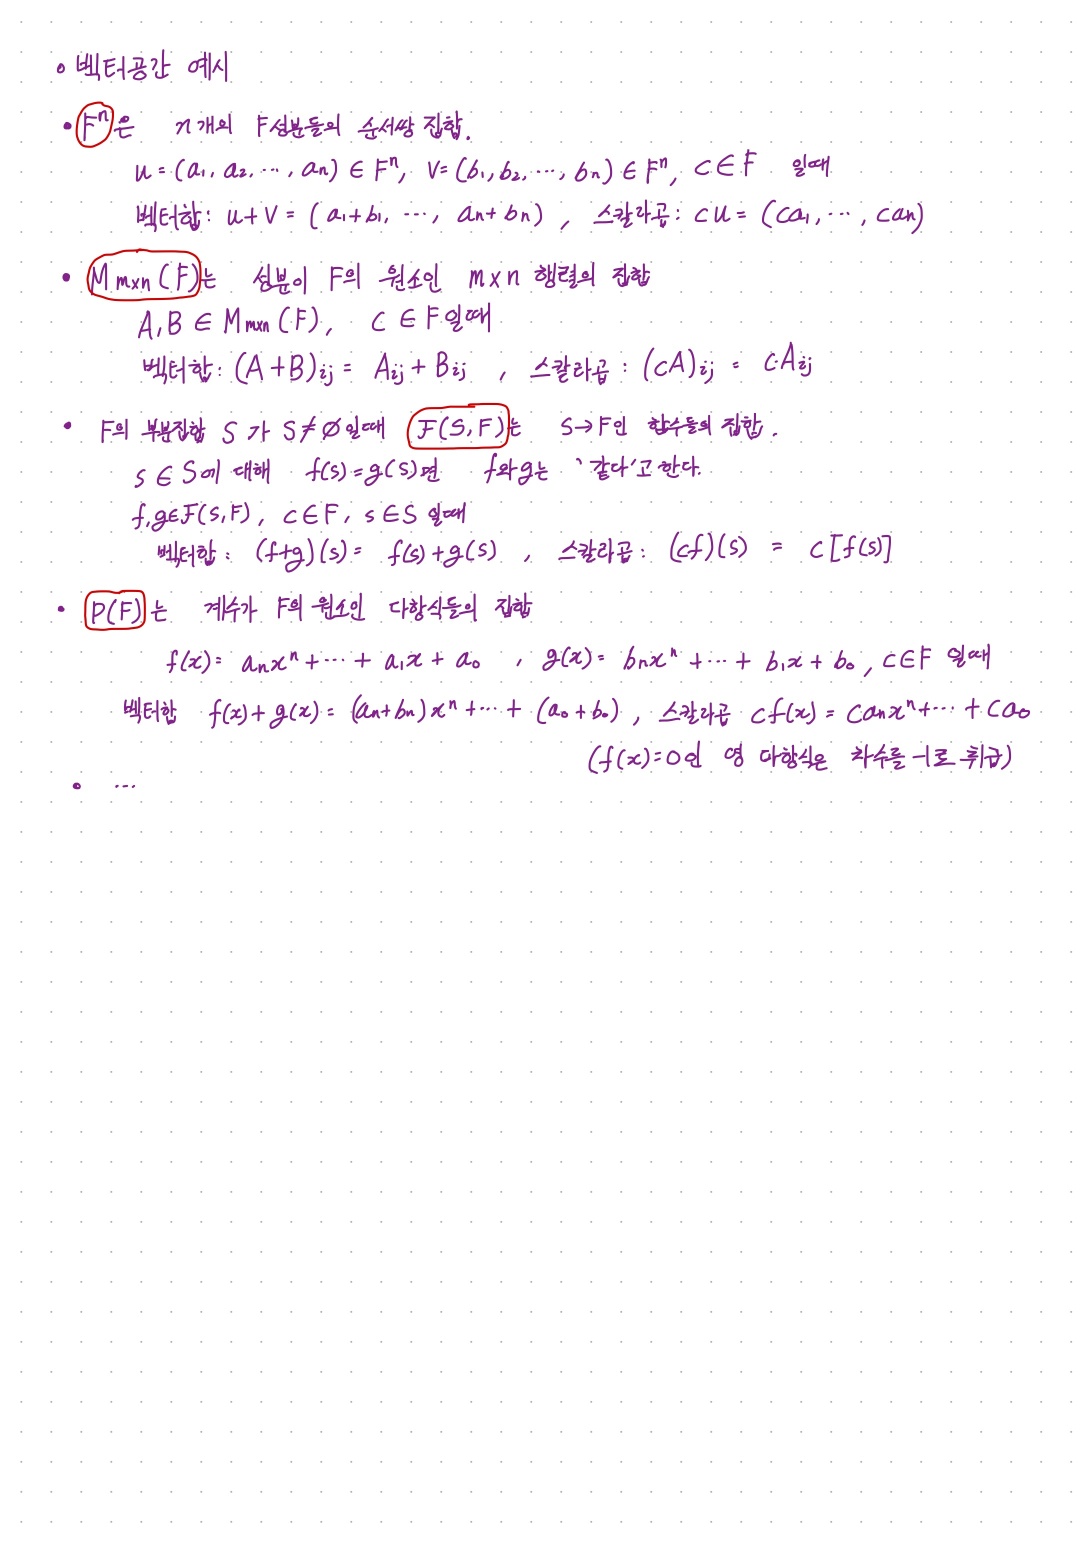 ∘ 벡터공간 예시
• Fⁿ은 n개의 F성분들의 순서쌍 집합.
u = (a₁, a₂, ⋯, aₙ) ∈ Fⁿ, v = (b₁, b₂, ⋯, bₙ) ∈ Fⁿ, c ∈ F 일때
벡터합: u+v = (a₁+b₁, ⋯, aₙ+bₙ) , 스칼라곱: cu = (ca₁, ⋯, caₙ)
• Mₘₓₙ(F)는 성분이 F의 원소인 m×n 행렬의 집합
A, B ∈ Mₘₓₙ(F), c ∈ F일때
벡터합: (A+B)ij = Aij + Bij , 스칼라곱: (cA)ij = c·Aij
• F의 부분집합 S가 S≠∅일때 F(S,F)는 S→F인 함수들의 집합.
s ∈ S에 대해 f(s)=g(s)면 f와 g는 '같다'고 한다.
f,g∈F(S,F), c∈F, s∈S 일때
벡터합: (f+g)(s) = f(s)+g(s) , 스칼라곱: (cf)(s) = c[f(s)]
• P(F)는 계수가 F의 원소인 다항식들의 집합
f(x) = aₙxⁿ+⋯+ a₁x + a₀ , g(x) = bₙxⁿ +⋯+ b₁x + b₀, c∈F 일때
벡터합 f(x)+g(x) = (aₙ+bₙ)xⁿ+⋯+ (a₀+b₀), 스칼라곱 cf(x) = caₙxⁿ+⋯+ca₀
(f(x)=0인 영 다항식은 차수를 -1로 취급)
• ⋯